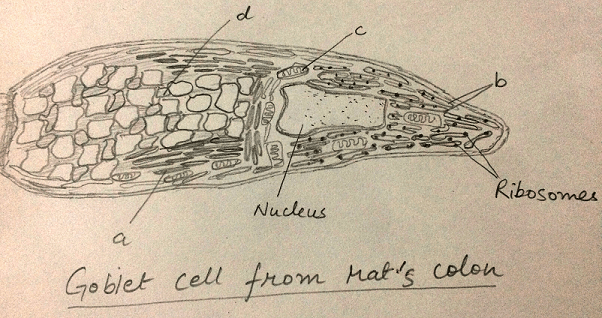 d
c
b
Ribosomes
Nucleus
a
Goblet cell from rat's colon